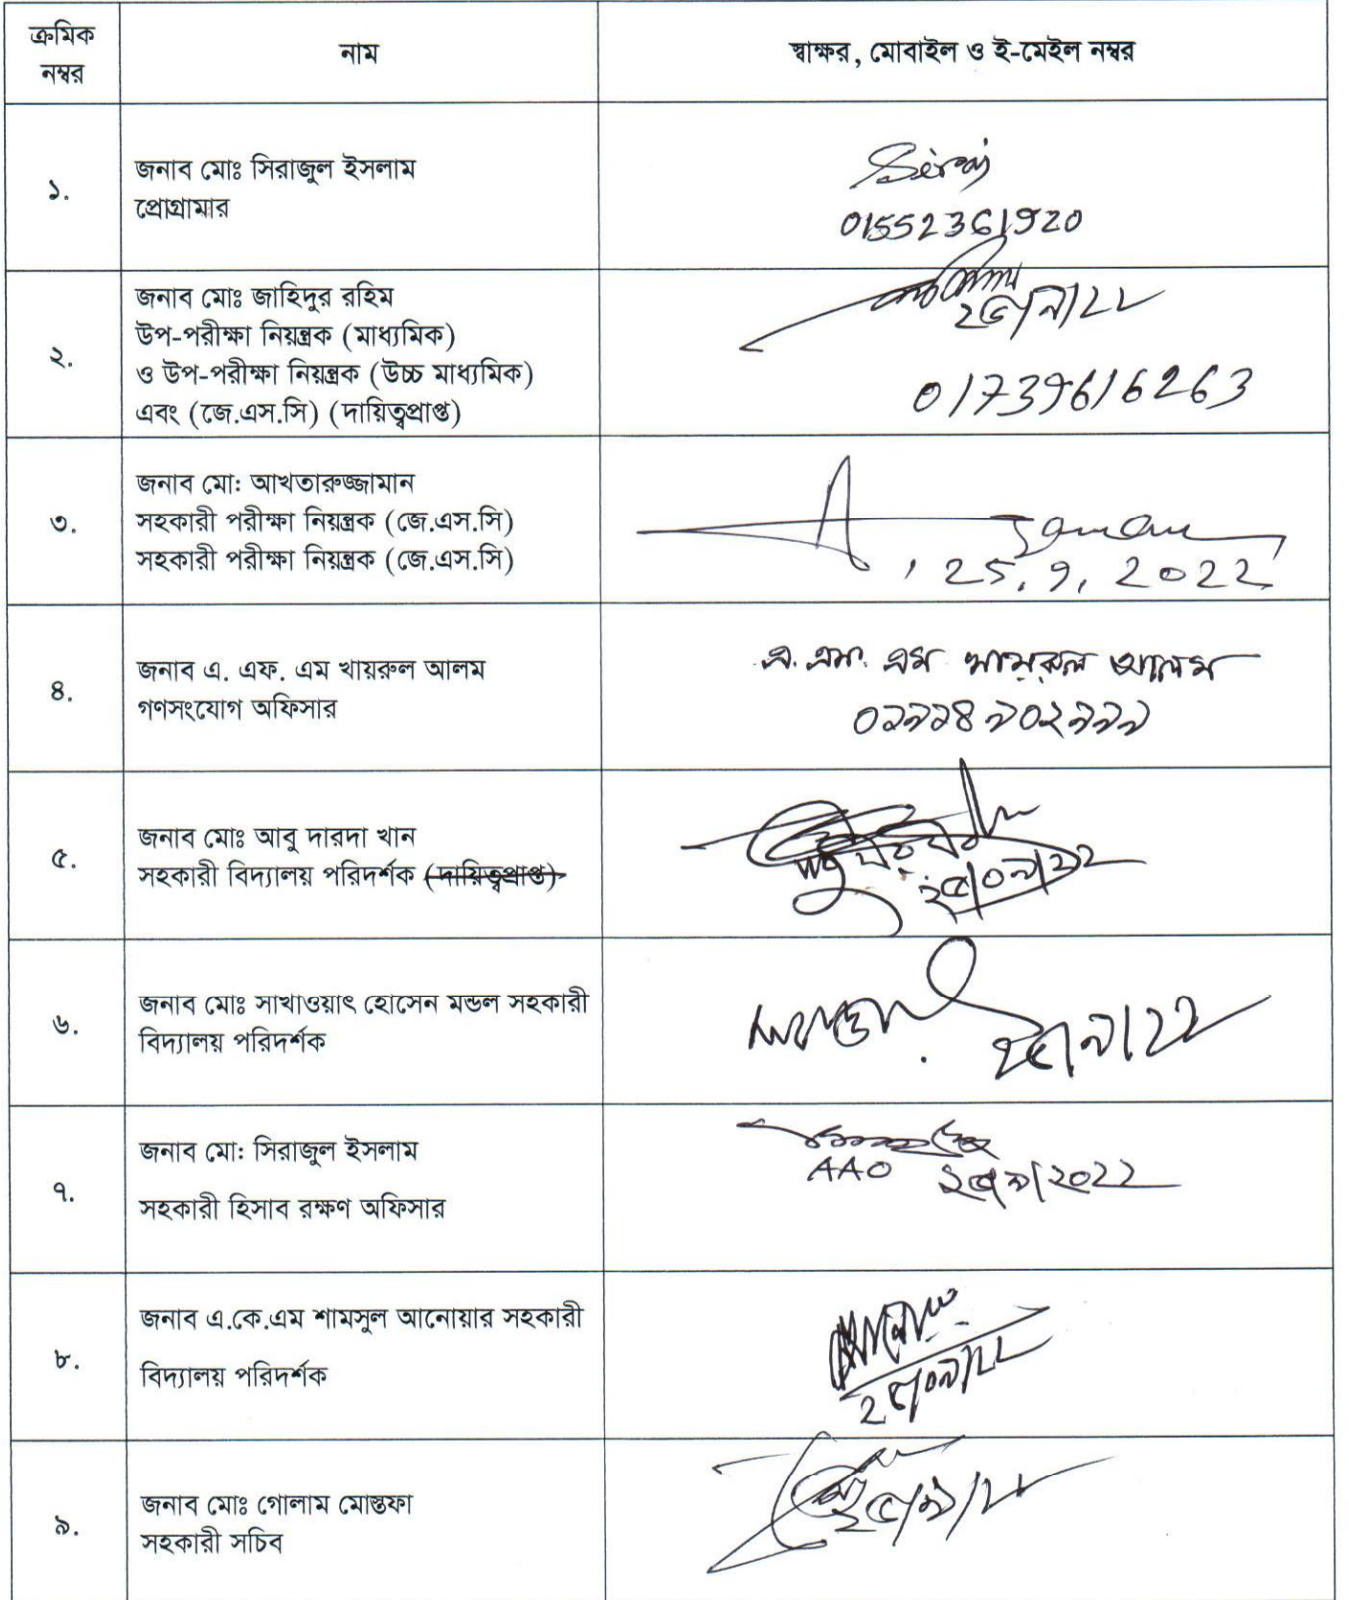 ক্রমিক
নম্বর
নাম
স্বাক্ষর, মোবাইল ও ই-মেইল নম্বর
১.
জনাব মোঃ সিরাজুল ইসলাম
প্রোগ্রামার
Seraj
01552361920
২.
জনাব মোঃ জাহিদুর রহিম
উপ-পরীক্ষা নিয়ন্ত্রক (মাধ্যমিক)
ও উপ-পরীক্ষা নিয়ন্ত্রক (উচ্চ মাধ্যমিক)
এবং (জে.এস.সি) (দায়িত্বপ্রাপ্ত)
01739616263
৩.
জনাব মো: আখতারুজ্জামান
সহকারী পরীক্ষা নিয়ন্ত্রক (জে.এস.সি)
সহকারী পরীক্ষা নিয়ন্ত্রক (জে.এস.সি)
25.9.2022
৪.
জনাব এ. এফ. এম খায়রুল আলম
গণসংযোগ অফিসার
এ. এফ. এম খায়রুল আলম
৫.
জনাব মোঃ আবু দারদা খান
সহকারী বিদ্যালয় পরিদর্শক (দায়িত্বপ্রাপ্ত)
২৫/০৯/২২
৬.
জনাব মোঃ সাখাওয়াৎ হোসেন মন্ডল সহকারী
বিদ্যালয় পরিদর্শক
২৫/৯/২২
৭.
জনাব মো: সিরাজুল ইসলাম
সহকারী হিসাব রক্ষণ অফিসার
AAO ২৫/৯/২০২২
৮.
জনাব এ.কে.এম শামসুল আনোয়ার সহকারী
বিদ্যালয় পরিদর্শক
২৫/০৯/২২
৯.
জনাব মোঃ গোলাম মোস্তফা
সহকারী সচিব
২৫/৯/২২